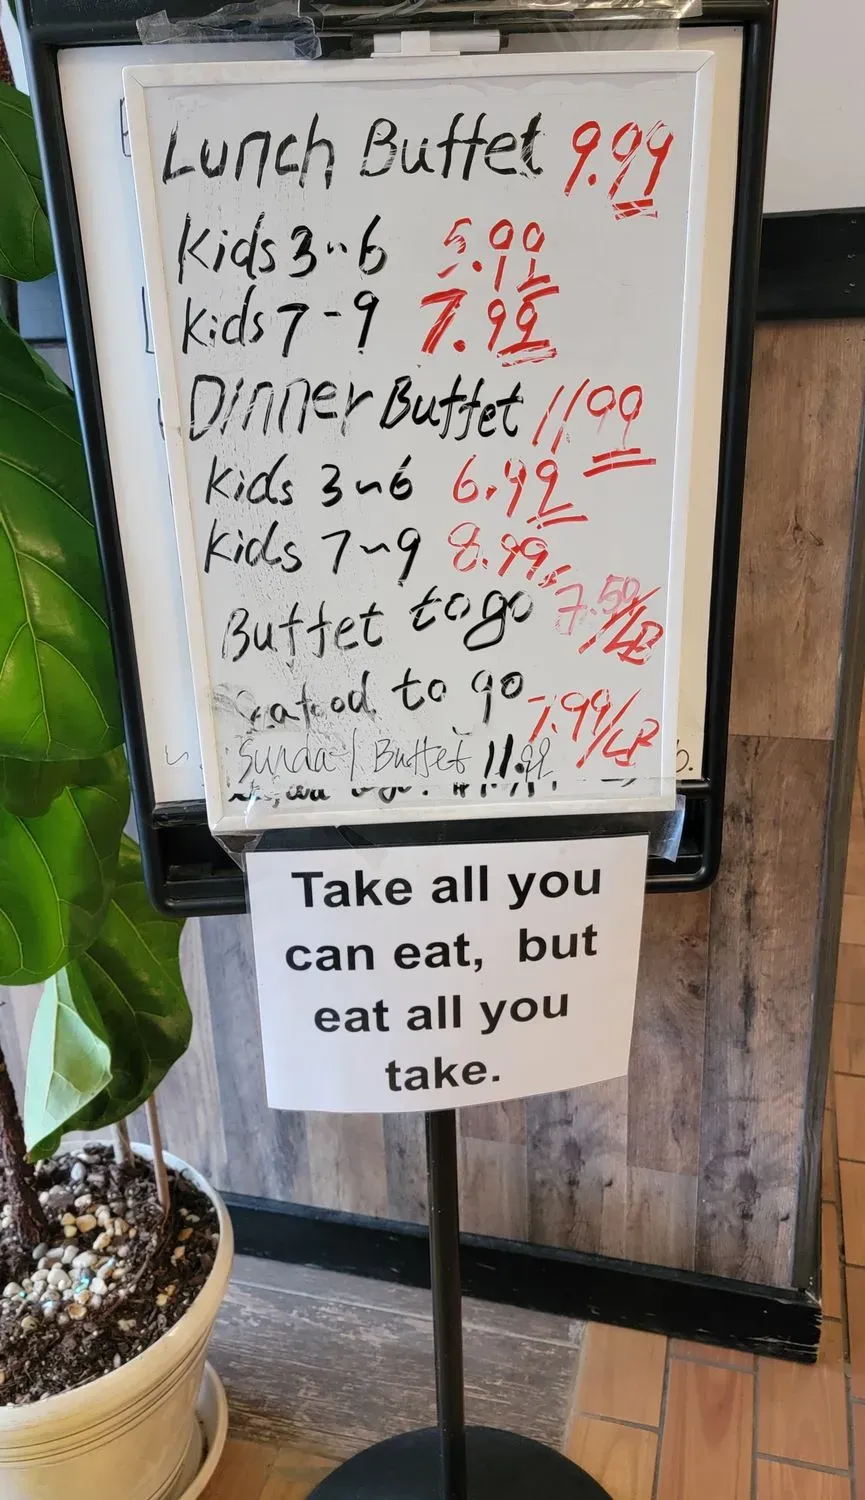 Lunch Buffet 9.99
Kids 3~6 5.99
Kids 7-9 7.99
Dinner Buffet 11.99
Kids 3~6 6.99
Kids 7~9 8.99
Buffet to go 7.50/LB
Seafood to go 7.99/LB
Sunday Buffet 11.99
Take all you
can eat, but
eat all you
take.